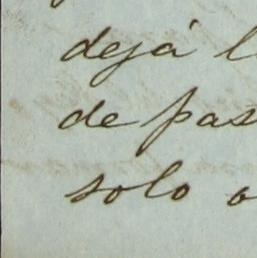 dejá l
de pas
solo o